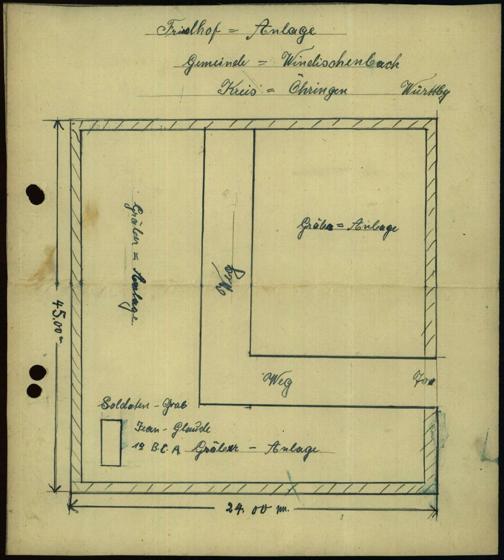 Friedhof = Anlage
Gemeinde = Windischenbach
Kreis = Öhringen Württbg
Gräber = Anlage
Weg
Gräber = Anlage
45.00 m
Weg
Tor
Soldaten - Grab
Jean - Glaude
B.C.A Gräber - Anlage
24.00 m.